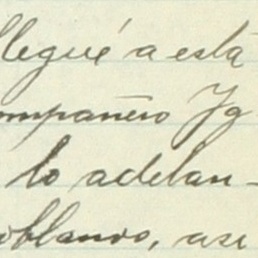 llegué a está
compañero Yg
lo adelan-
oblano, asi